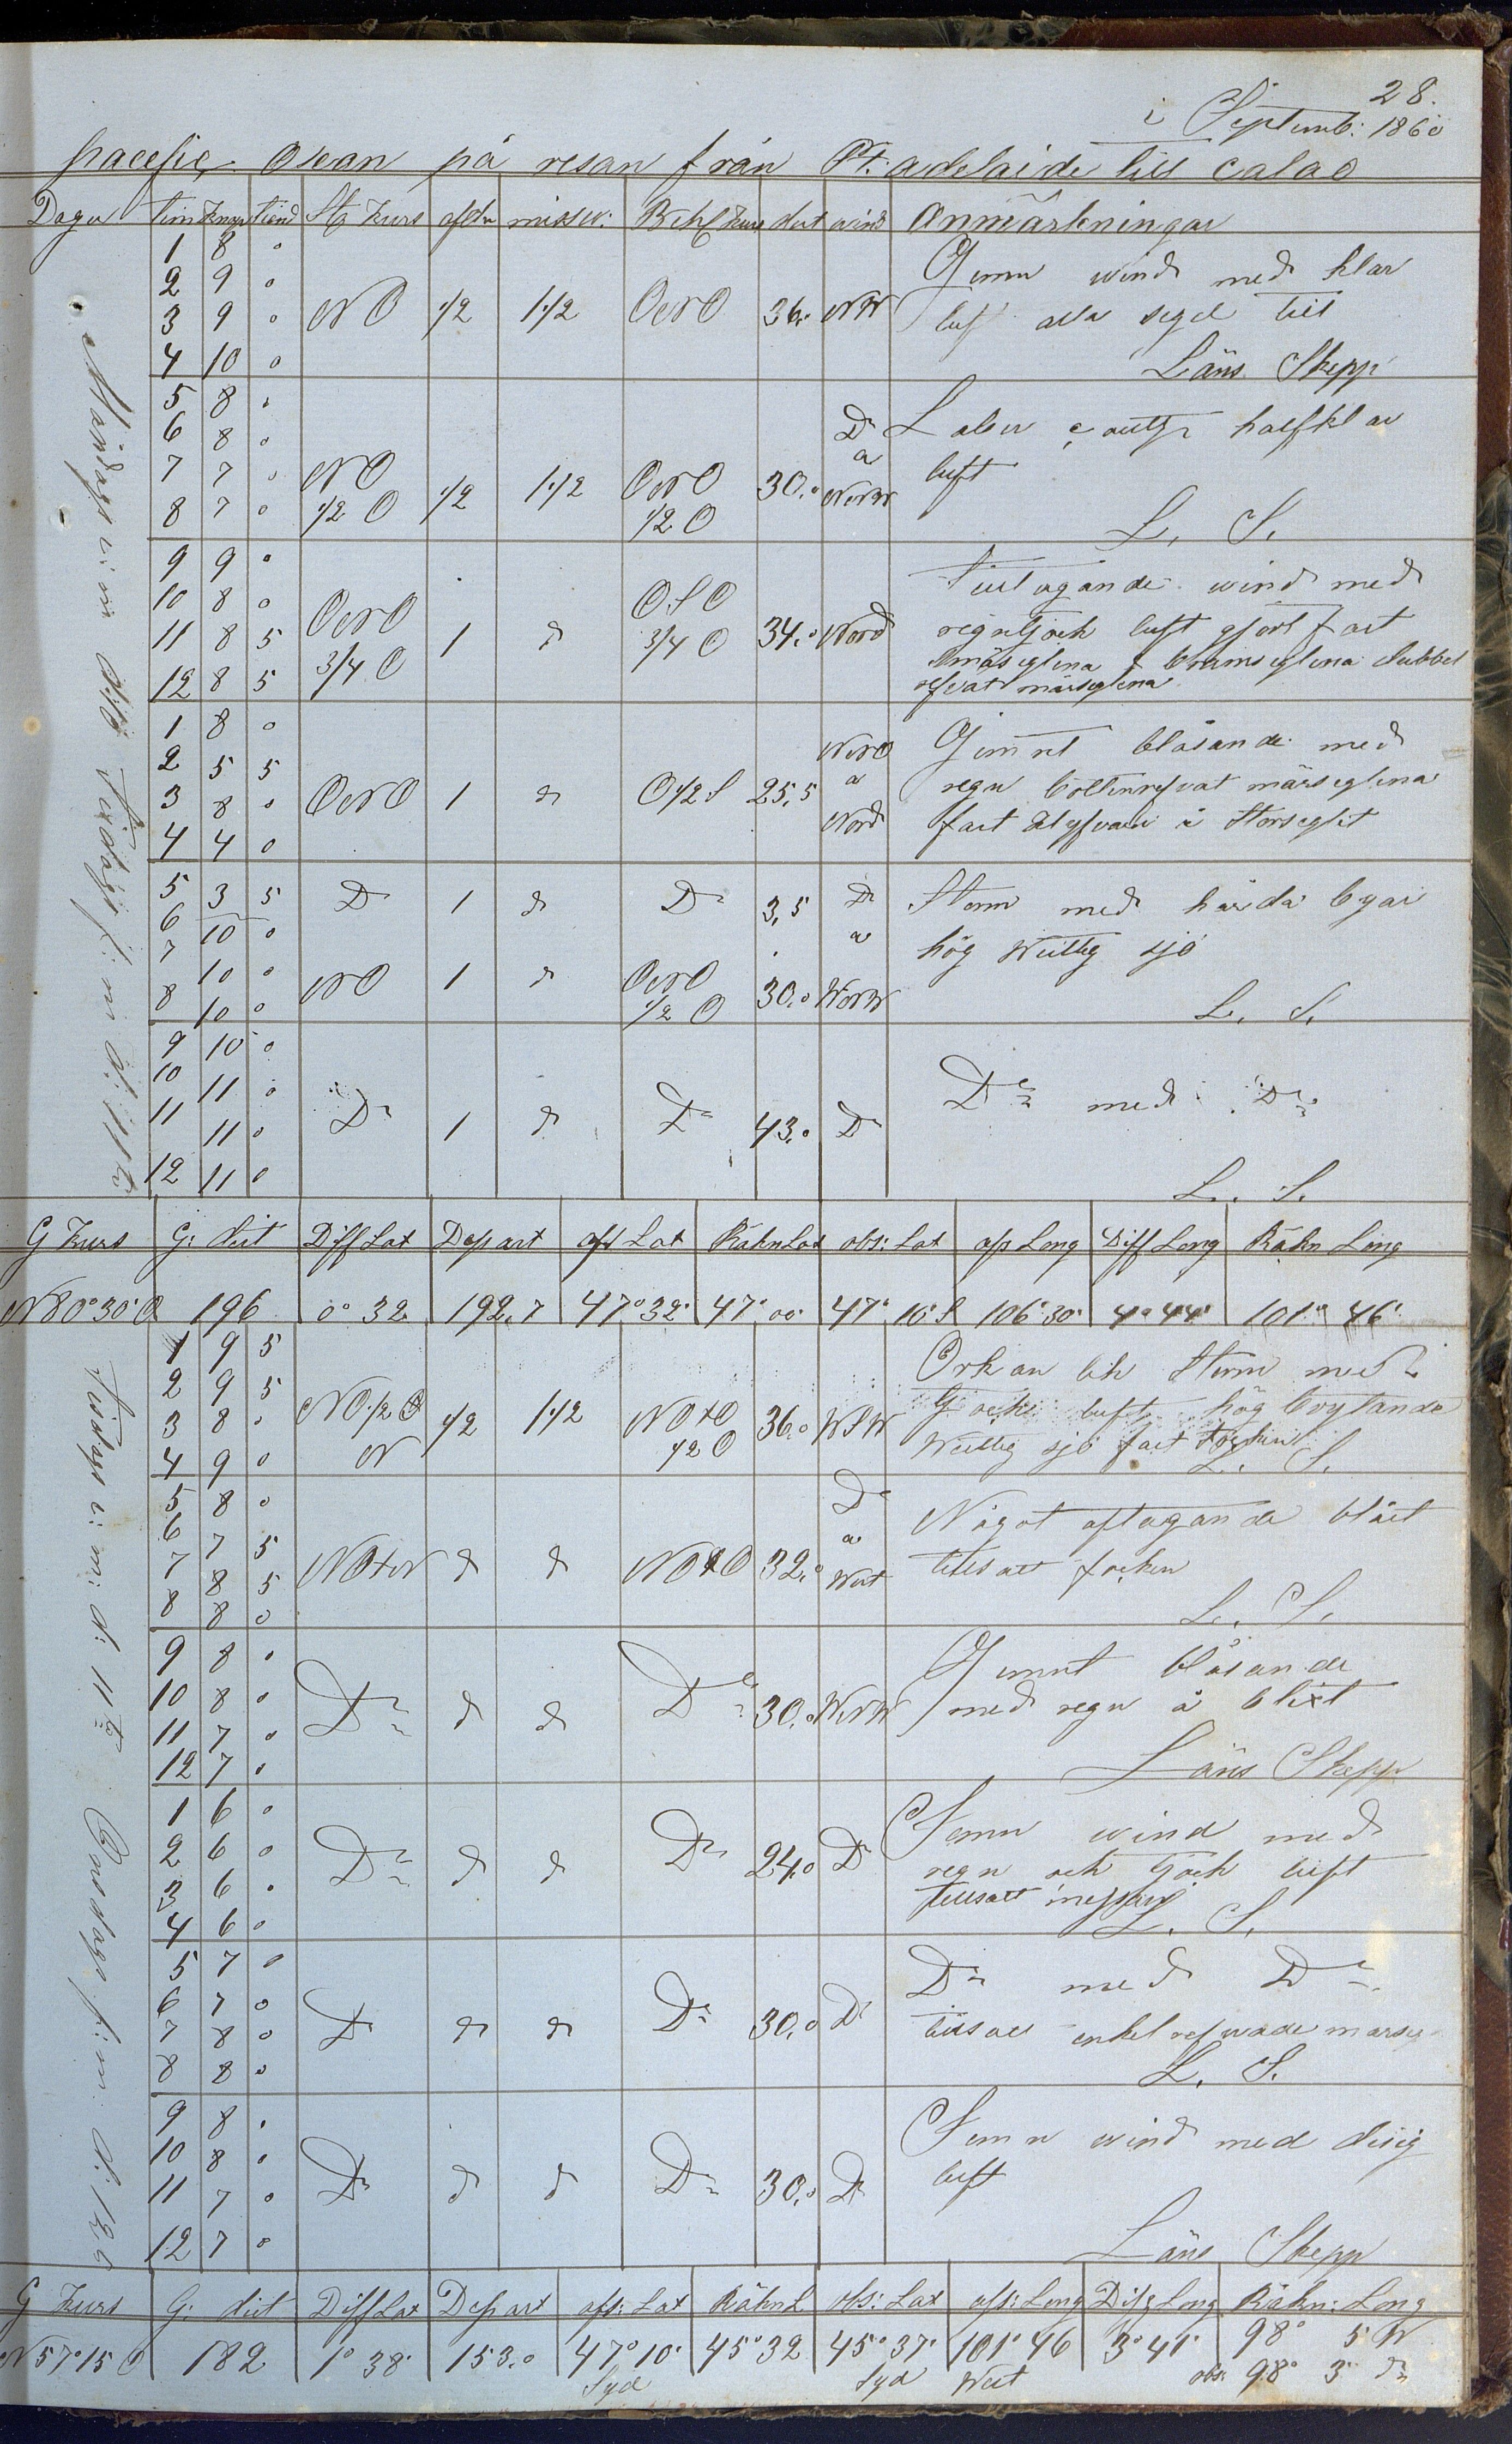 28.
i Septemb: 1860
pacefic Osean på resan från Pt: adelaide till Calao
Dagn tim Knop tiend St Kurs afdr missv: Beh Kurs dist wind Anmärkningar
Måndags e: m d: 10 Tisdags f: m d: 11
1 8 0
2 9 0
3 9 0 NO 1/2 1 1/2 ONO 36,0 NW
4 10 0
Jemn wind med klar
luft alla segel till
Läns Skepp
5 8 0
6 8 0
7 7 0 NO 1/2 O 1/2 1 1/2 ONO 1/2 O 30,0 Do a NNW
8 7 0
Laber halfklar
luft
L. S.
9 9 0
10 8 0
11 8 5 ONO 3/4 O 1 do OSO 3/4 O 34,0 Nord
12 8 5
Tilltagande wind med
luft gjort fast
småseglena & bramseglena dubbel
refvat märseglena
1 8 0
2 5 5
3 8 0 ONO 1 do O 1/2 S 25,5 NNO a Nord
4 4 0
Jemnt blåsande med
regn bottenrefvat märseglena
fast å Storseglet
5 3 5 Do 1 do Do 3,5 Do
6 10 0 a
7 10 0
8 10 0 NO 1 do ONO 1/2 O 30,0 WNW
Storm med hårda byar
hög Westlig sjö
L. S.
9 10 0
10 11 0
11 11 0 Do 1 do Do 43,0 Do
12 11 0
Do med Do
L. S.
G Kurs G: dist Diff Lat Depart afs Lat Räkn Lat obs: Lat afs Long Diff Long Räkn Long
N80°30'O 196 0° 32 192,7 47°32' 47° 00' 47° 10' S 106°30' 4°44' 101° 46'
Tisdags e: m: d: 11 Onsdags f: m. d. 12
1 9 5
2 9 5
3 8 0 NO 1/2 N 1/2 1 1/2 NOtO 1/2 O 36,0 WSW
4 9 0
Orkan lik Storm med
tjock luft hög brytande
Westlig sjö fast focken
L. S.
5 8 0
6 7 5
7 8 5 NOtN do do NOtO 32,0 Do a West
8 8 0
Något aftagande blåst
tillsatt focken
L. S.
9 8 0
10 8 0
11 7 0 Do do do Do 30,0 WNW
12 7 0
Jemnt blåsande
med regn å blixt
Läns Skepp
1 6 0
2 6 0
3 6 0 Do do do Do 24,0 Do
4 6 0
Jemn wind med
regn och tjock luft
tillsatt
L. S.
5 7 0
6 7 0
7 8 0 Do do do Do 30,0 Do
8 8 0
Do med Do
tillsatt enkel refwade märseg
L. S.
9 8 0
10 8 0
11 7 0 Do do do Do 30,0 Do
12 7 0
Jemn wind med disig
luft
Läns Skepp
G Kurs G: dist Diff Lat Depart afs: Lat Räkn L obs: Lat afs: Long Diff Long Räkn: Long
N57°15'O 182 1° 38' 153,0 47°10' 45°32 45°37' 101°46 3°41' 98° 5 W
Syd Syd West obs: 98° 3' do